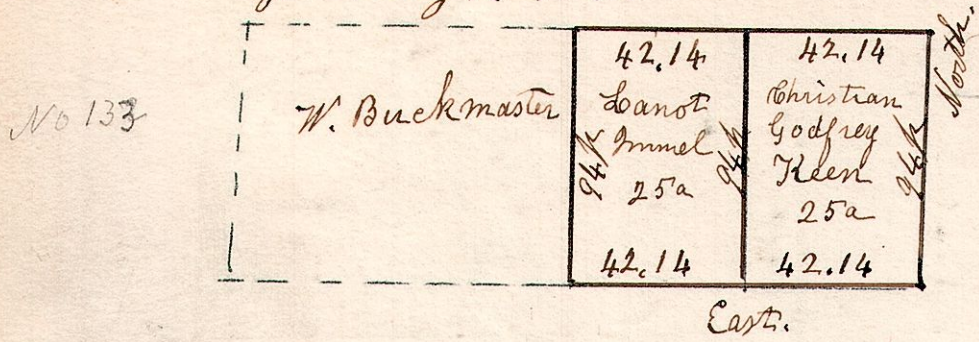 No 133
W. Buckmaster
42.14
Lanot
Immel
94p
25a
94p
42.14
42.14
Christian
Godfrey
Keen
94p
25a
42.14
North.
East.